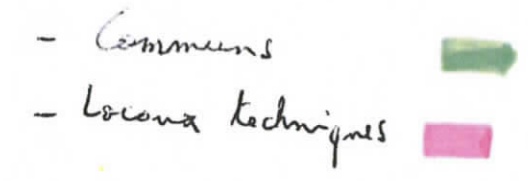 - Communs
- Locaux techniques